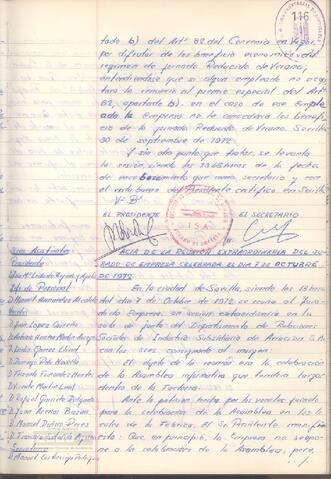 116
tado b) del Artº 82 del Convenio en Vigor
por disfrutar de los beneficios económicos del
régimen de Jornada Reducida de Verano,
entendiendose que si algun empleado no acep
tara la renuncia al premio especial del Artº
82, apartado b). en el caso de ese emplea
ado la Empresa no le concedería los benefi
cios de la jornada Reducida de Verano. Sevilla
30 de septiembre de 1972
Y sin más puntos que tratar, se levanta
la sesión, siendo las 13.65 horas de la fecha
de encabezamiento que como secretario y con
el visto bueno del Presidente certifico en Sevilla
Vº Bº
EL PRESIDENTE
EL SECRETARIO
I.S.A.
ACTA DE LA REUNION EXTRAORDINARIA DEL JU-
DE EMPRESA CELEBRADA EL DIA 7 DE OCTUBRE
DE 1972
En la ciudad de Sevilla, siendo las 13 horas
del día 7 de Octubre de 1972 se reune el Jurado
de Empresa, en sesión extraordinaria en la
sala de juntas del Departamento de Relaciones
Sociales de Industria Subsidiaria de Aviación S.A.
con los sres consignados al margen:
El objeto de la reunión era la celebración
de la Asamblea informativa que tendría lugar
dentro de la Factoría.
Ante la petición hecha por los vocales Jurado
para la celebración de la Asamblea en los lo
cales de la Fábrica. El Sr. Presidente manifies
ta: Que en principio, la Empresa no se opone
a la celebración de la Asamblea, pero,
Sres Asistentes
Presidente
Jefe de Personal
D. Manuel Menendez
Vocales
D. Juan Lopez
D. Antonio
D. Emilio Gomez
D. Domingo Polo
D. Vicente Fernandez
D. Vicente Martin
D. Rafael Garrido Delgado
D. Juan Armas Bazan
D. Manuel Dominguez Perez
D. Francisco
Secretario
D. Manuel